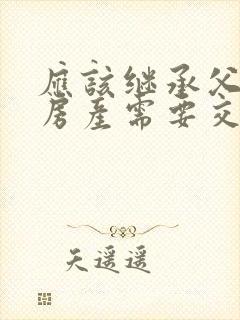 應該继承父
房產需要交
天遥遥